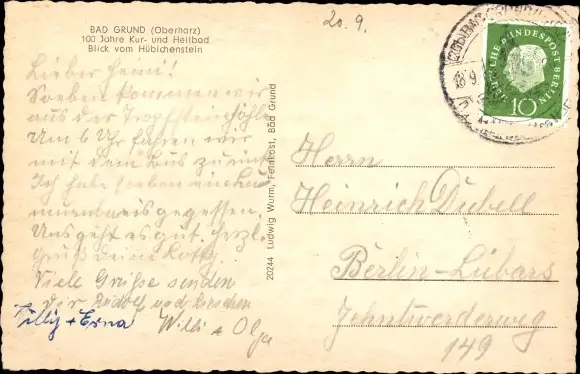 BAD GRUND (Oberharz)
100 Jahre Kur- und Heilbad
Blick vom Hübichenstein
20.9.
DEUTSCHE BUNDESPOST BERLIN
10
Lieber Heini!
Soeben kommen wir
aus der Tropfsteinhöhle
Um 6 Uhr fahren wir
mit dem Bus zurück
Ich habe soeben
gegessen.
Uns geht es gut. Herzl.
Gruß Deine
Viele Grüße senden
Dir Rudolf und
Willi + Olga
Tilly + Erna
20244 Ludwig Wurm, Feinkost, Bad Grund
Herrn
Heinrich Dubell
Berlin-Lübars
Zehntwerderweg
149